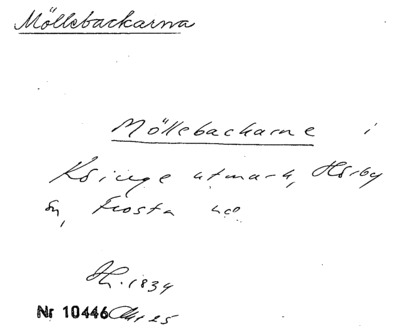 Möllebackarna
Möllebackarne i
utmark, Hörby
sn, Frosta hd
1834
Nr 10446